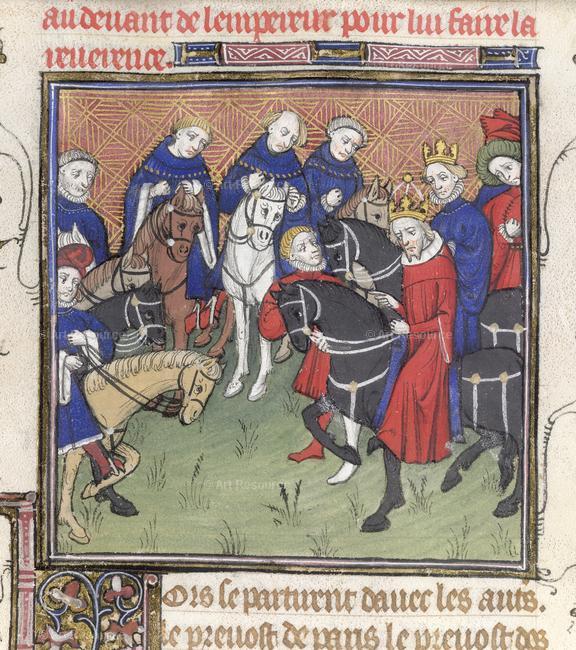 au devant de lempereur pour lui faire la
reuerence.
© Art Resource
© Art Resource
© Art Resource
© Art Resource
Ors se partirent dauec les auts.
le preuost de paris le preuost des